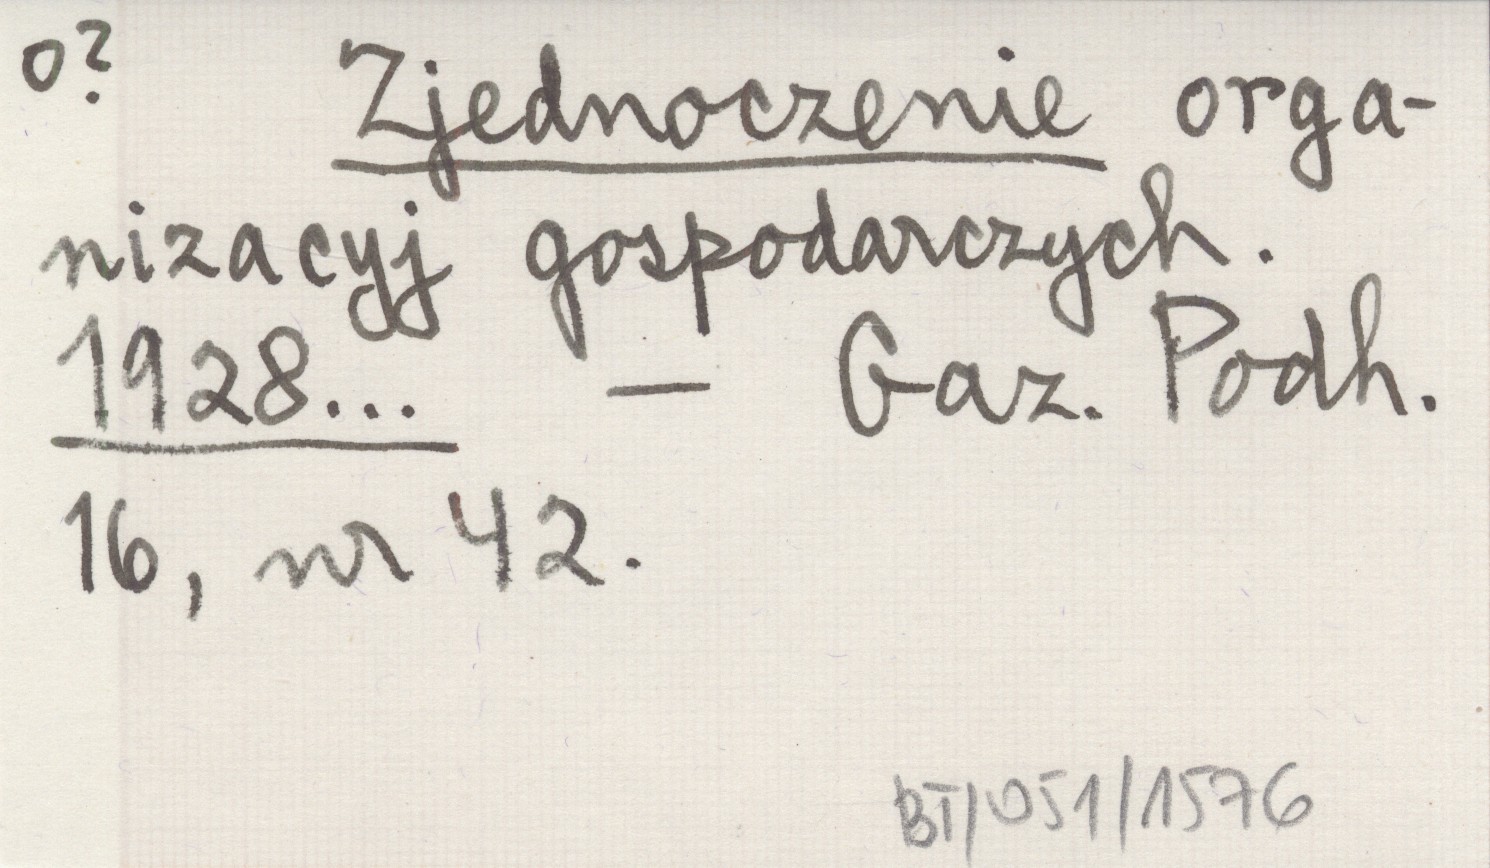 o?
Zjednoczenie orga-
nizacyj gospodarczych.
1928... — Gaz. Podh.
16, nr 42.
BT/051/1576